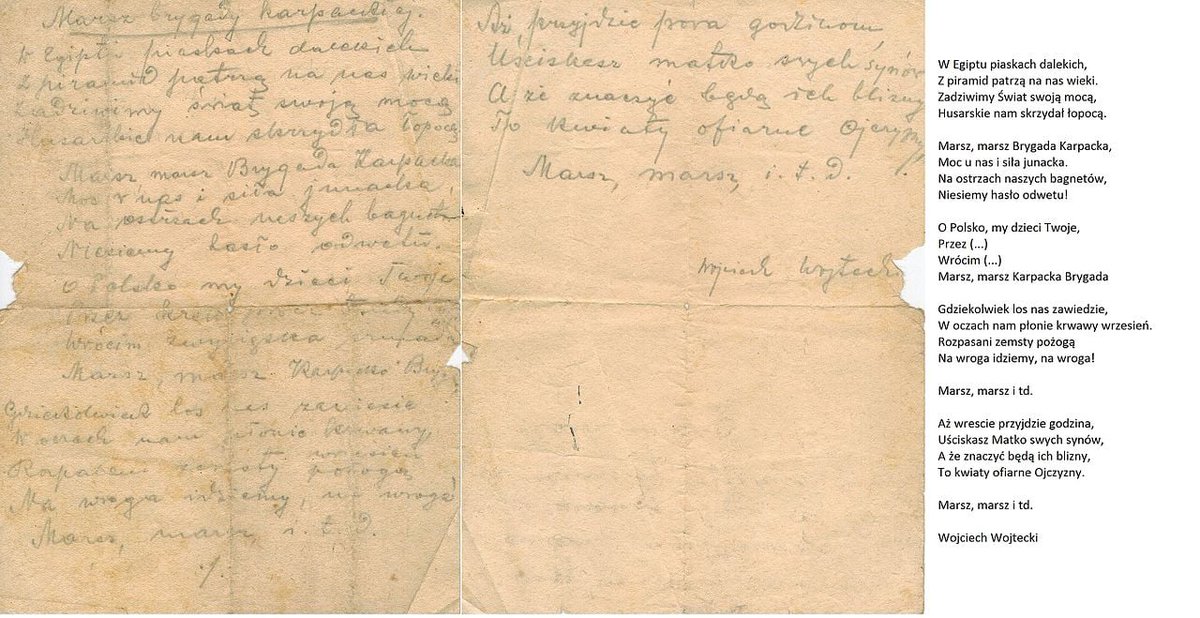 Marsz brygady karpackiej.
W Egiptu piaskach dalekich
Z piramid patrzą na nas wieki
Zadziwimy świat swoją mocą
Husarskie nam skrzydła łopocą
Marsz marsz Brygada Karpacka
Moc u nas i siła junacka,
Na ostrzach naszych bagnetów
Niesiemy hasło odwetu.
O Polsko my dzieci Twoje
Przez
Wrócim
Marsz, marsz Karpacka Bryg
Gdziekolwiek los nas zawiesie
W oczach nam płonie krwawy,
wrzesień
Rapasani zemsty pożogą
Na wroga idziemy, na wroga
Marsz, marsz, i. t. d.
./.
Aż, przyjdzie pora godzinom,
Uściskasz matko swych synów
A że znaczyć będą ich blizny
To kwiaty ofiarne Ojczyzny!
Marsz, marsz, i. t. d.
Wojciech Wojtecki
W Egiptu piaskach dalekich,
Z piramid patrzą na nas wieki.
Zadziwimy Świat swoją mocą,
Husarskie nam skrzydał łopocą.
Marsz, marsz Brygada Karpacka,
Moc u nas i siła junacka.
Na ostrzach naszych bagnetów,
Niesiemy hasło odwetu!
O Polsko, my dzieci Twoje,
Przez (...)
Wrócim (...)
Marsz, marsz Karpacka Brygada
Gdziekolwiek los nas zawiedzie,
W oczach nam płonie krwawy wrzesień.
Rozpasani zemsty pożogą
Na wroga idziemy, na wroga!
Marsz, marsz i td.
Aż wrescie przyjdzie godzina,
Uściskasz Matko swych synów,
A że znaczyć będą ich blizny,
To kwiaty ofiarne Ojczyzny.
Marsz, marsz i td.
Wojciech Wojtecki